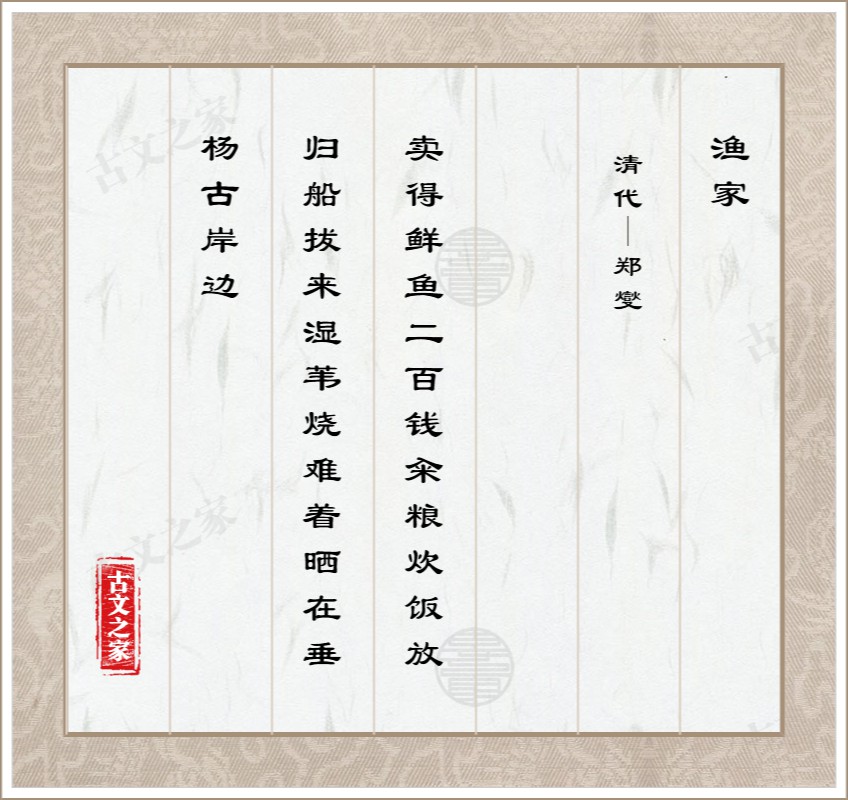 渔家
清代—郑燮
卖得鲜鱼二百钱籴粮炊饭放
归船拔来湿苇烧难着晒在垂
杨古岸边
古文之家
古文之家
文之家
古